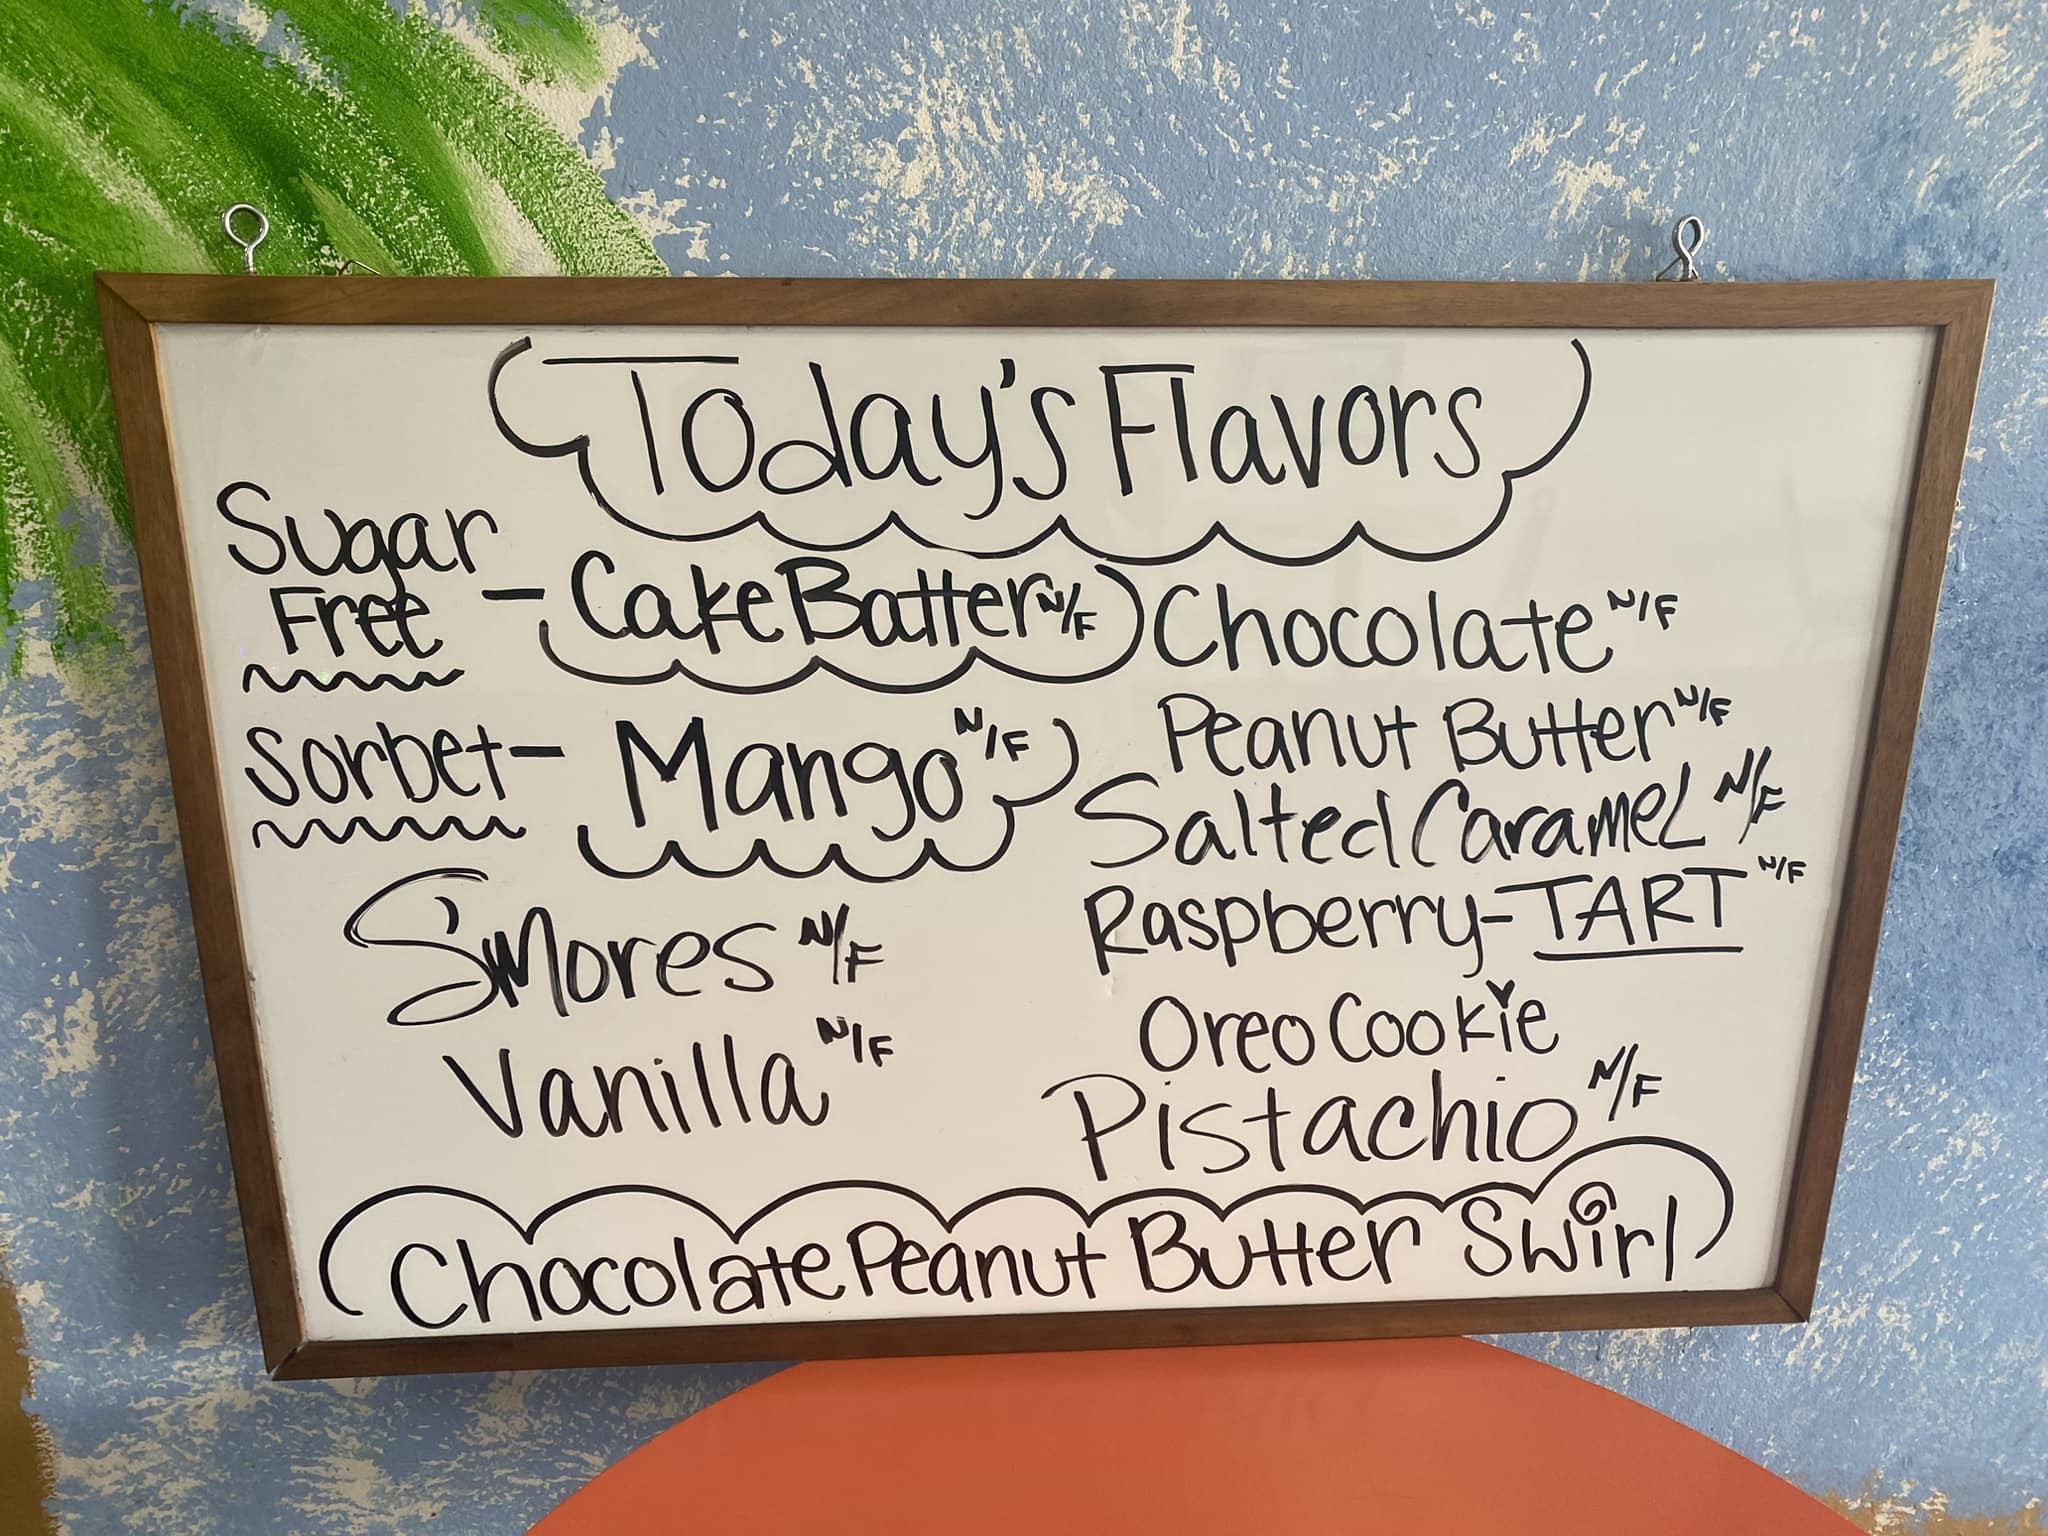 Today's Flavors
Sugar
Free - Cake Batter N/F
Sorbet - Mango N/F
S'mores N/F
Vanilla N/F
Chocolate N/F
Peanut Butter N/F
Salted Caramel N/F
Raspberry-TART N/F
Oreo Cookie
Pistachio N/F
Chocolate Peanut Butter Swirl